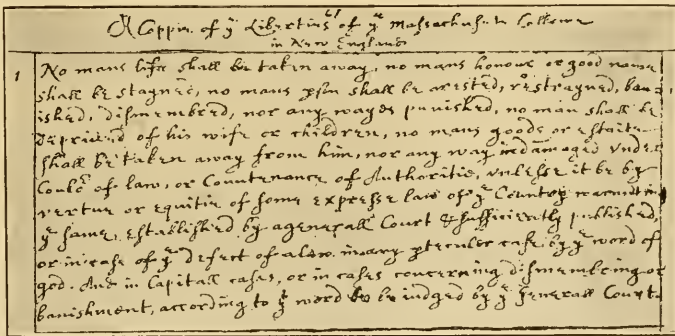 A Coppie of yᵉ Liberties of yᵉ Massachusets Collonie
in New England
1 No mans life shall be taken away, no mans honour or good name
shall be stayned, no mans pson shall be arested, restrayned, ban
ished, dismembred, nor any wayes punished, no man shall be
deprived of his wife or children, no mans goods or estaite
shall be taken away from him, nor any way indamaged vnder
Coulor of law, or Countenance of Authoritie, vnlesse it be by
vertue or equitie of some expresse law of yᵉ Country warranting
yᵉ same, established by a generall Court & sufficiently published,
or in case of yᵉ defect of a law in any pteculer case by yᵉ word of
god. And in Capitall cases, or in cases concerning dismembring or
banishment, according to yᵉ word to be iudged by yᵉ generall Court.